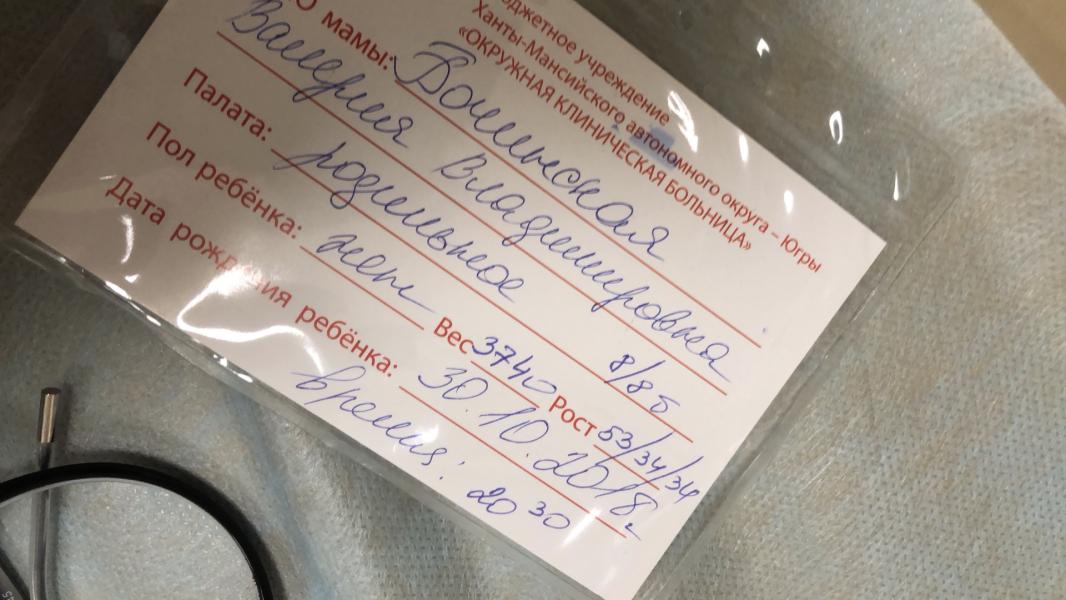 юджетное учреждение
Ханты-Мансийского автономного округа – Югры
«ОКРУЖНАЯ КЛИНИЧЕСКАЯ БОЛЬНИЦА»
О мамы:
Валерия Владимировна
Палата: родильное 8/8б
Пол ребёнка: жен Вес 3740 Рост 53/34/34
Дата рождения ребёнка: 30.10.2018г
время: 20 30